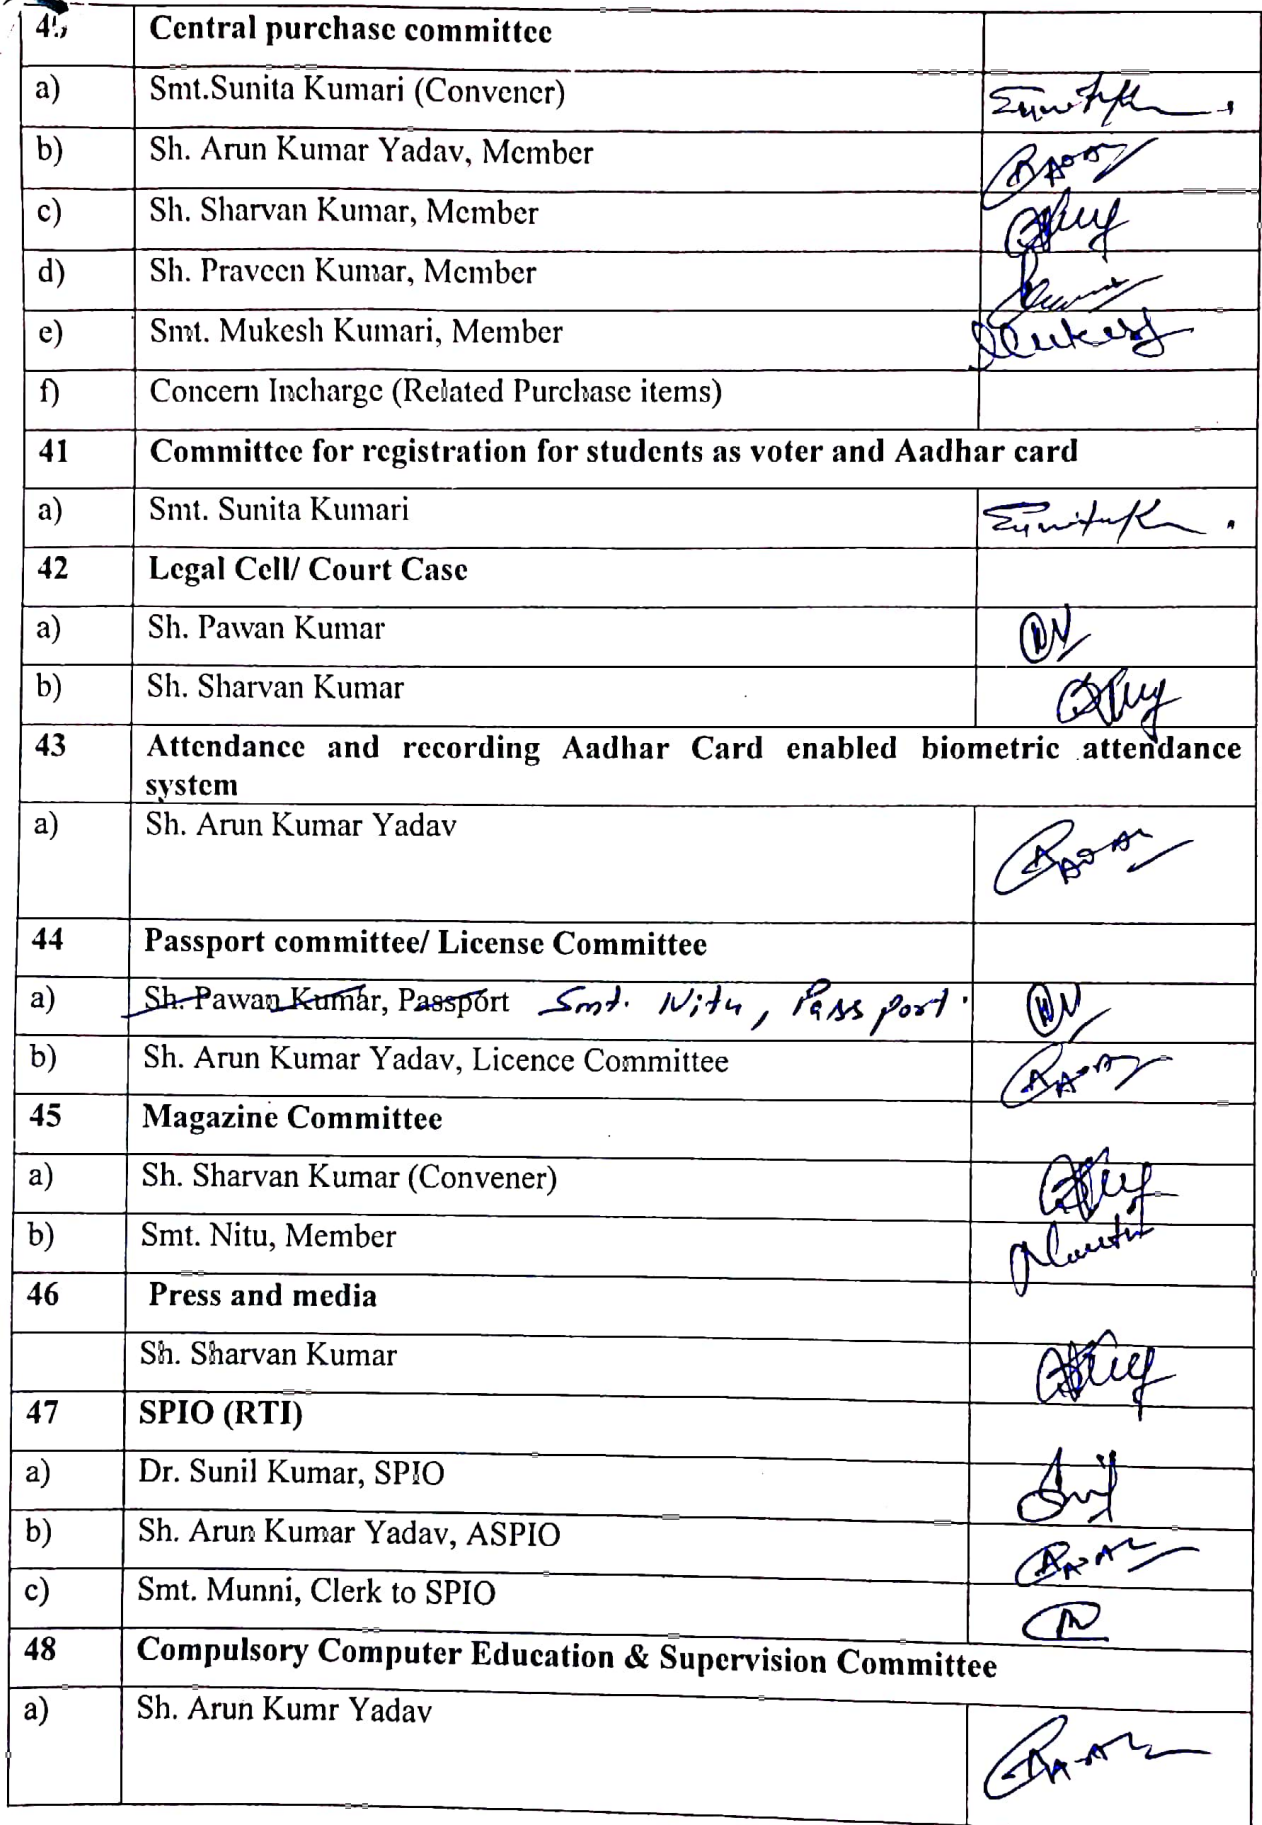 Central purchase committee
a) Smt.Sunita Kumari (Convener)
b) Sh. Arun Kumar Yadav, Member
c) Sh. Sharvan Kumar, Member
d) Sh. Praveen Kumar, Member
e) Smt. Mukesh Kumari, Member
f) Concern Incharge (Related Purchase items)
41 Committee for registration for students as voter and Aadhar card
a) Smt. Sunita Kumari
42 Legal Cell/ Court Case
a) Sh. Pawan Kumar
b) Sh. Sharvan Kumar
43 Attendance and recording Aadhar Card enabled biometric attendance
system
a) Sh. Arun Kumar Yadav
44 Passport committee/ License Committee
a) Sh. Pawan Kumar, Passport Smt. Nitu, Passport
b) Sh. Arun Kumar Yadav, Licence Committee
45 Magazine Committee
a) Sh. Sharvan Kumar (Convener)
b) Smt. Nitu, Member
46 Press and media
Sh. Sharvan Kumar
47 SPIO (RTI)
a) Dr. Sunil Kumar, SPIO
b) Sh. Arun Kumar Yadav, ASPIO
c) Smt. Munni, Clerk to SPIO
48 Compulsory Computer Education & Supervision Committee
a) Sh. Arun Kumr Yadav